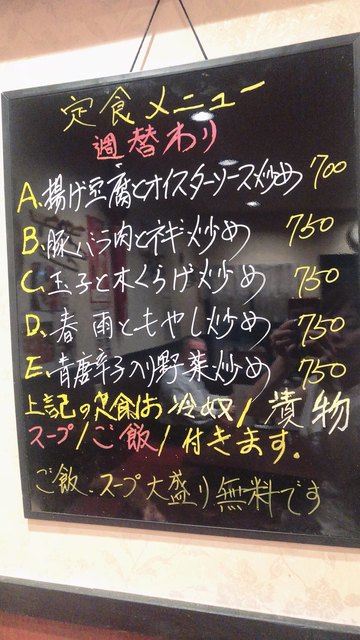 定食メニュー
週替わり
A.揚げ豆腐とオイスターソース炒め 700
B.豚バラ肉とネギ炒め 750
C.玉子と木くらげ炒め 750
D.春雨ともやし炒め 750
E.青唐辛子入り野菜炒め 750
上記の定食は冷奴/漬物
スープ/ご飯/付きます.
ご飯.スープ大盛り無料です